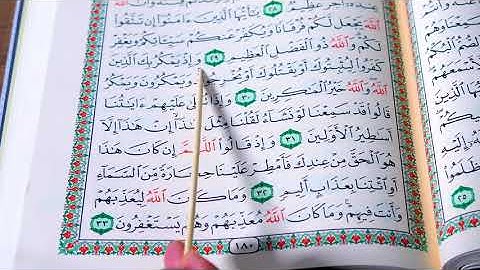 أَجْرٌ عَظِيمٌ ٢٨ يَٰٓأَيُّهَا ٱلَّذِينَ ءَامَنُوٓا۟ إِن تَتَّقُوا۟
ٱللَّهَ يَجْعَل لَّكُمْ فُرْقَانًا وَيُكَفِّرْ عَنكُمْ سَيِّـَٔاتِكُمْ وَيَغْفِرْ
لَكُمْ وَٱللَّهُ ذُو ٱلْفَضْلِ ٱلْعَظِيمِ ٢٩ وَإِذْ يَمْكُرُ بِكَ ٱلَّذِينَ
كَفَرُوا۟ لِيُثْبِتُوكَ أَوْ يَقْتُلُوكَ أَوْ يُخْرِجُوكَ وَيَمْكُرُونَ وَيَمْكُرُ
ٱللَّهُ وَٱللَّهُ خَيْرُ ٱلْمَٰكِرِينَ ٣٠ وَإِذَا تُتْلَىٰ عَلَيْهِمْ ءَايَٰتُنَا
قَالُوا۟ قَدْ سَمِعْنَا لَوْ نَشَآءُ لَقُلْنَا مِثْلَ هَٰذَآ إِنْ هَٰذَآ إِلَّآ
أَسَٰطِيرُ ٱلْأَوَّلِينَ ٣١ وَإِذْ قَالُوا۟ ٱللَّهُمَّ إِن كَانَ هَٰذَا
هُوَ ٱلْحَقَّ مِنْ عِندِكَ فَأَمْطِرْ عَلَيْنَا حِجَارَةً مِّنَ ٱلسَّمَآءِ
أَوِ ٱئْتِنَا بِعَذَابٍ أَلِيمٍ ٣٢ وَمَا كَانَ ٱللَّهُ لِيُعَذِّبَهُمْ
وَأَنتَ فِيهِمْ وَمَا كَانَ ٱللَّهُ مُعَذِّبَهُمْ وَهُمْ يَسْتَغْفِرُونَ ٣٣
١٨٠